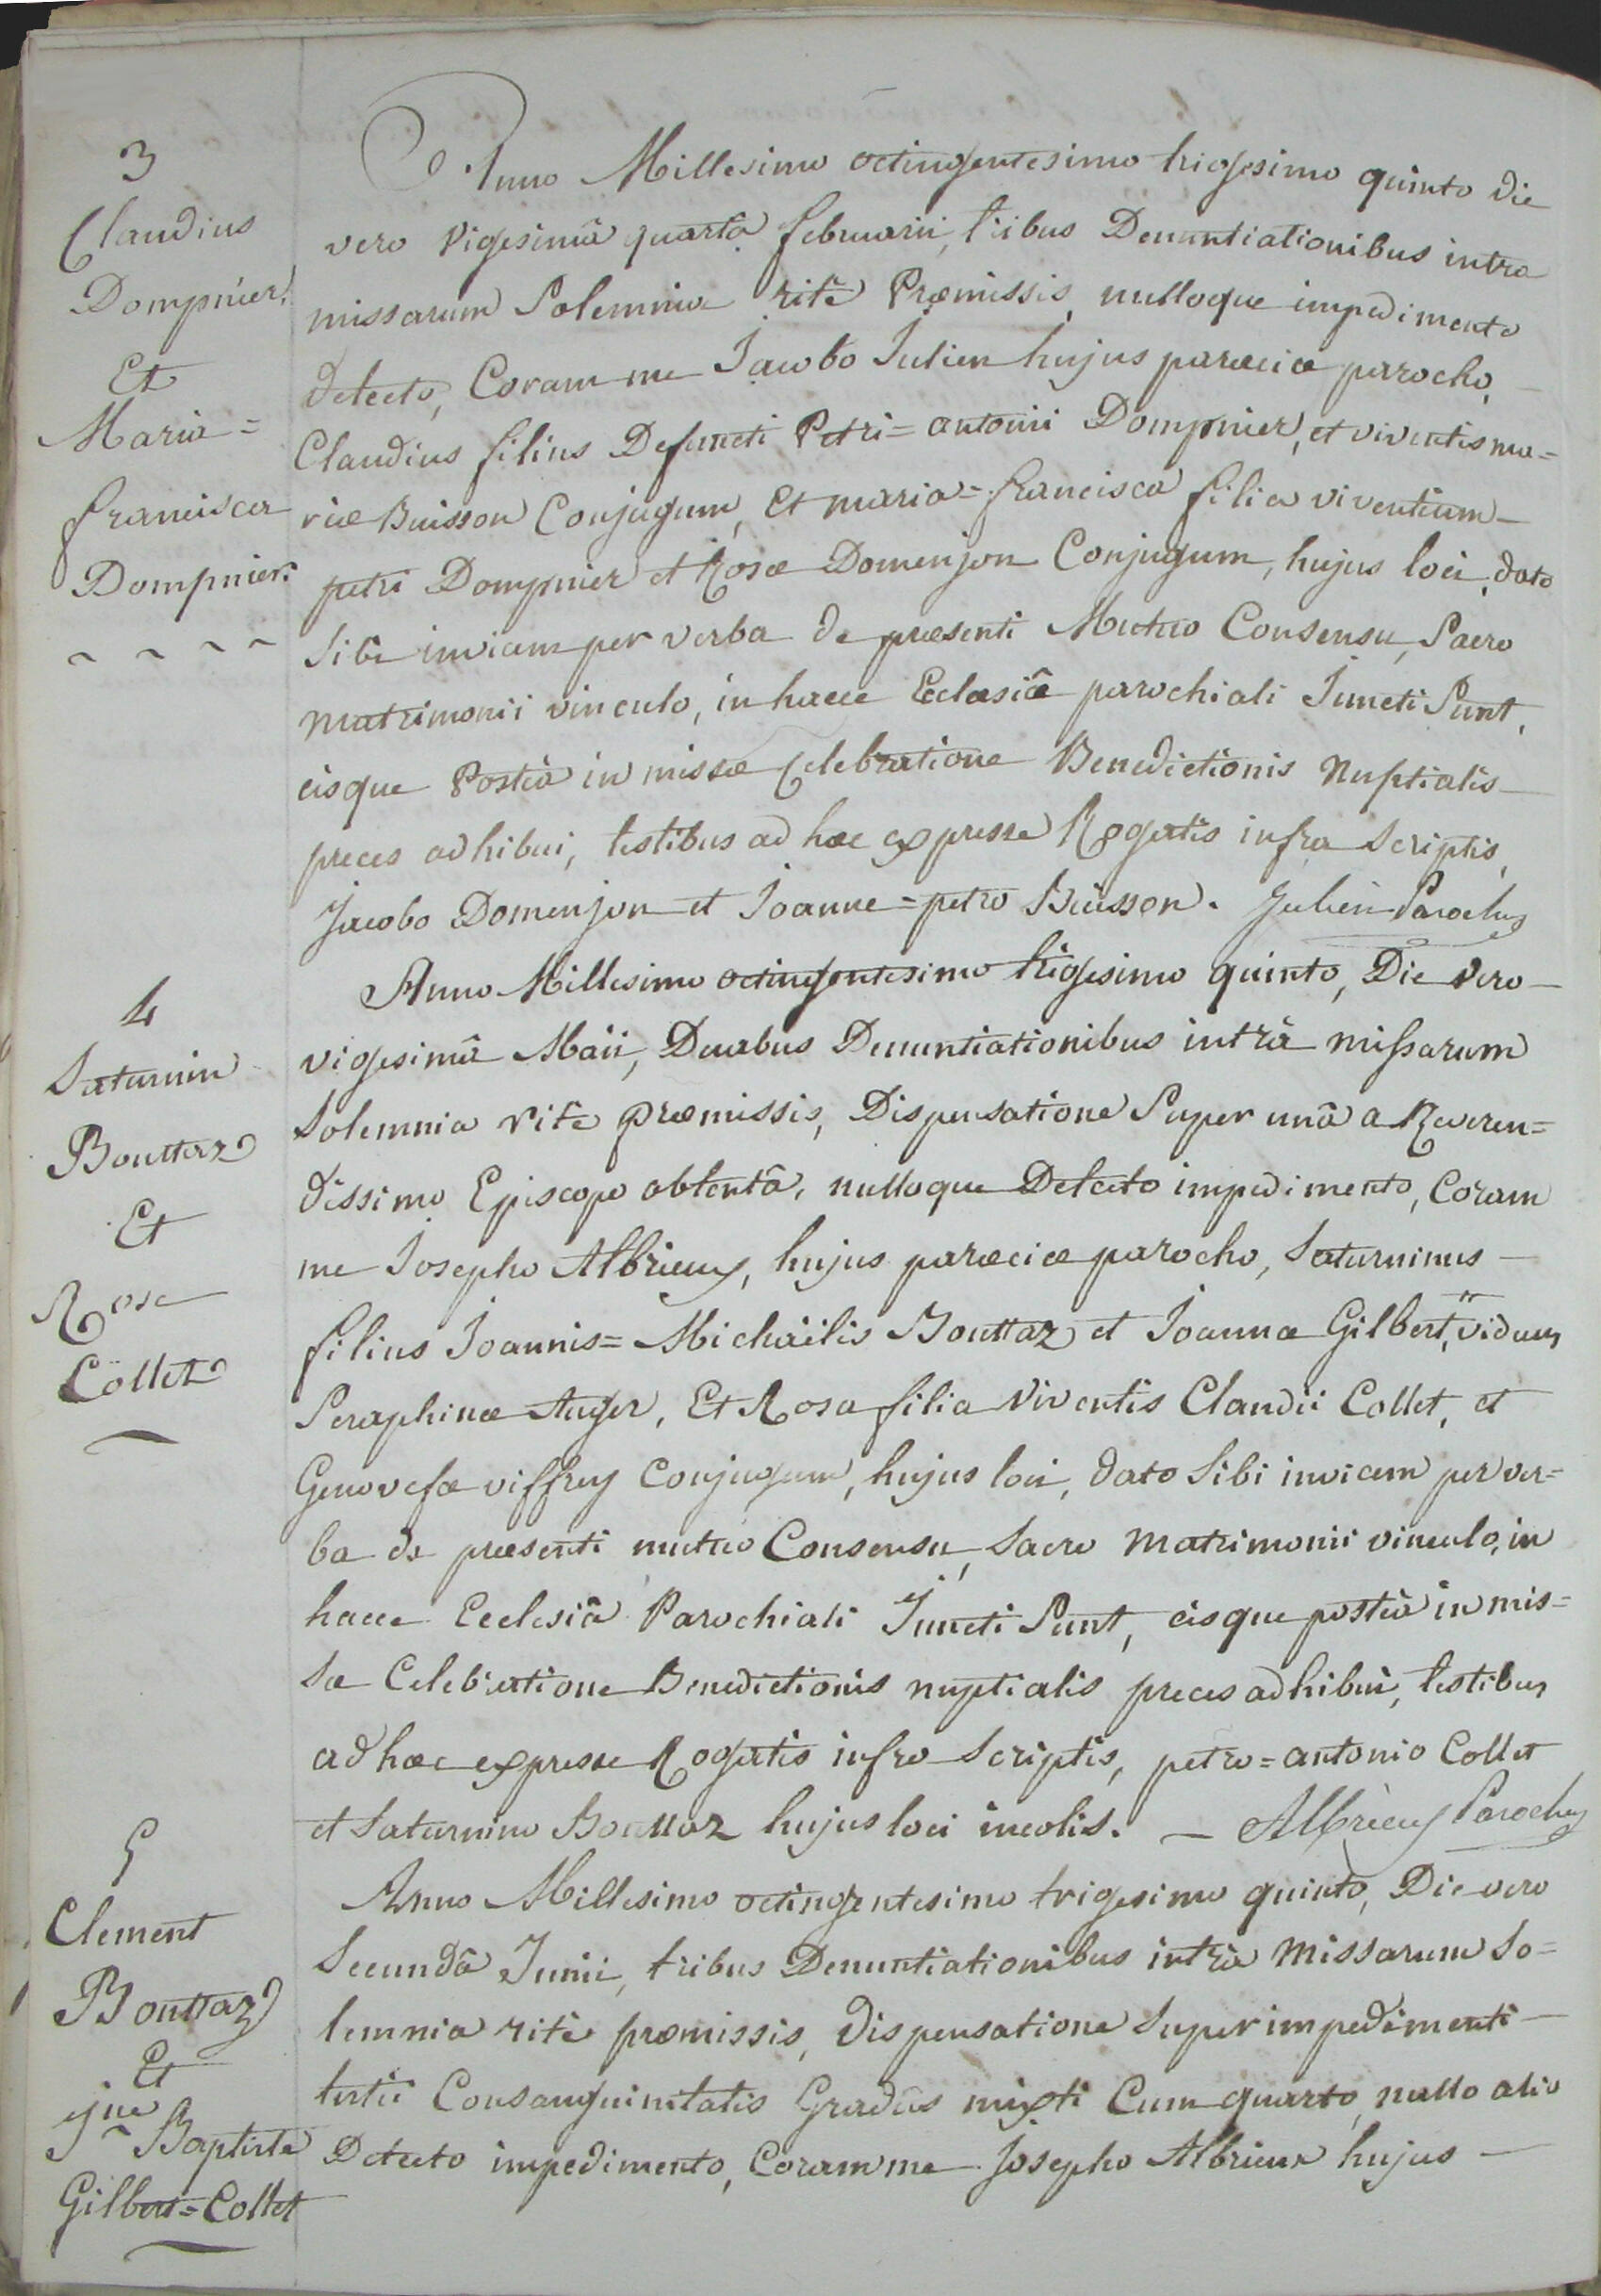 3
Claudius
Dompnier,
Et
Maria=
francisca
Dompnier.
Anno Millesimo octingentesimo trigesimo quinto die
vero vigesimâ quartâ februarii, tribus Denuntiationibus intra
missarum Solemnia ritè Præmissis, nulloque impedimento
detecto, Coram me Jacobo Julien hujus paræciæ parocho,
Claudius filius Defuncti Petri=antonii Dompnier, et viventis ma=
riæ Buisson Conjugum, Et maria=francisca filia viventium
petri Dompnier et Rosæ Domenjon Conjugum, hujus loci, dato
Sibi invicem per verba de præsenti Mutuo Consensu, Sacro
matrimonii vinculo, in hacce Ecclesiâ parochiali Juncti Sunt,
eisque Posteà in missæ Celebratione Benedictionis Nuptialis
preces adhibui, testibus ad hæc expresse Rogatis infra Scriptis,
Jacobo Domenjon et Joanne=petro Buisson. Julien Parochus
4
Saturnin
Bouttaz
Et
Rose
Collet
Anno Millesimo octingentesimo trigesimo quinto, Die vero
vigesimâ Maii, Duabus Denuntiationibus intrà missarum
Solemnia ritè præmissis, Dispensatione Super unâ a Reveren=
dissimo Episcopo obtentâ, nulloque Detecto impedimento, Coram
me Josepho Albrieux, hujus paræciæ parocho, Saturninus
filius Joannis=Michaëlis Bouttaz et Joannæ Gilbert, viduus
Seraphinæ Auger, Et Rosa filia viventis Claudii Collet, et
Genovefæ viffrey Conjugum, hujus loci, dato Sibi invicem per ver=
ba de præsenti mutuo Consensu, Sacro matrimonii vinculo, in
hacce Ecclesiâ Parochiali Juncti Sunt, eisque posteà in mis=
sæ Celebratione Benedictionis nuptialis preces adhibui, testibus
ad hæc expresse Rogatis infra Scriptis, petro=antonio Collet
et Saturnino Bouttaz hujus loci incolis. — Albrieux Parochus
5
Clement
Bouttaz
Et
Jne
Baptiste
Gilbert=Collet
Anno Millesimo octingentesimo trigesimo quinto, Die vero
Secundâ Junii, tribus Denuntiationibus intrà Missarum So=
lemnia ritè præmissis, Dispensatione Super impedimenti
tertii Consanguinitatis Gradûs mixti Cum quarto, nullo alio
Detecto impedimento, Coram me Josepho Albrieux hujus